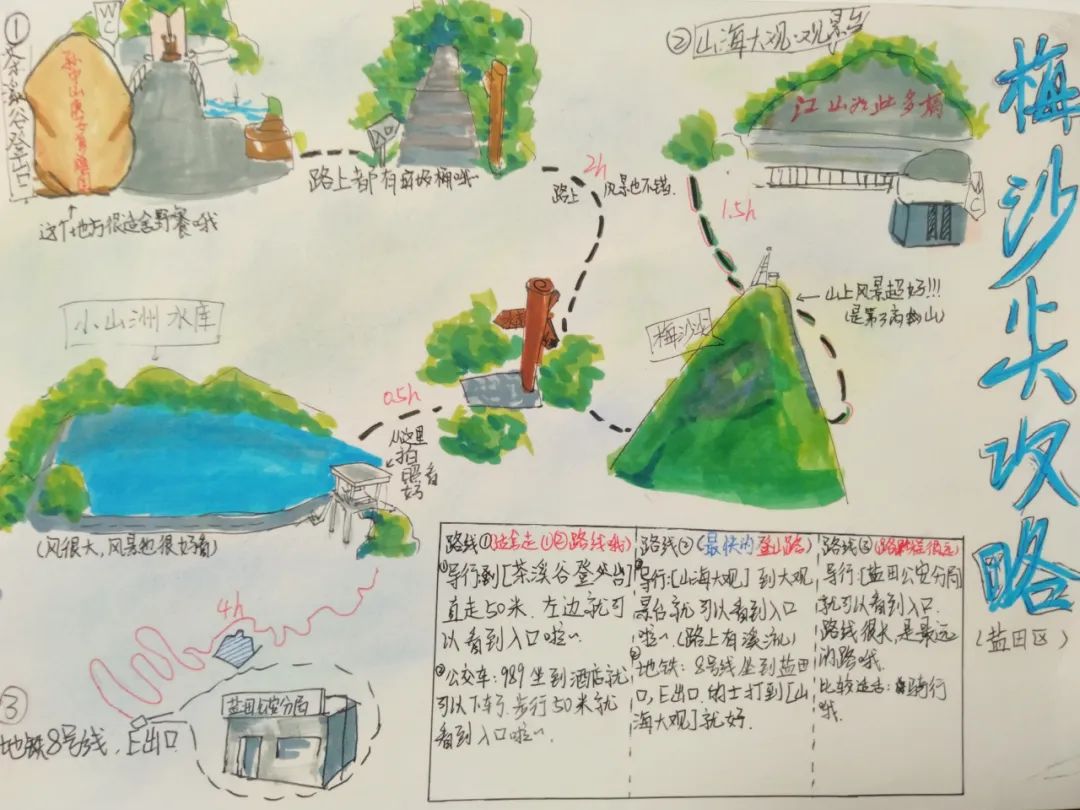 梅沙尖攻略
(盐田区)
①
茶溪谷登山口
WC
入口
路上都有
这个地方很适合野餐哦
2h
路上风景也不错.
② 山海大观观景台
江山如此多娇
WC
1.5h
梅沙尖
山上风景超好!!!
小山洲水库
0.5h
从这里
拍
照看
好
(风很大,风景也很好看)
4h
③
盐田公安分局
地铁8号线,E出口
路线①(适合走①②路线哦)
①导行到[茶溪谷登山台]
直走50米.左边就可
以看到入口啦~
②公交车:989坐到酒店就
可以下车了.步行50米就
看到入口啦~
路线②(最快的登山路)
①导行:[山海大观]到大观
景台就可以看到入口
啦~(路上有溪流)
②地铁:8号线坐到盐田
口,E出口的士打到[山
海大观]就好.
路线③
导行:[盐田公安分局]
就可以看到入口.
路线很长,是最远
的路哦.
比较适合:骑行
哦.